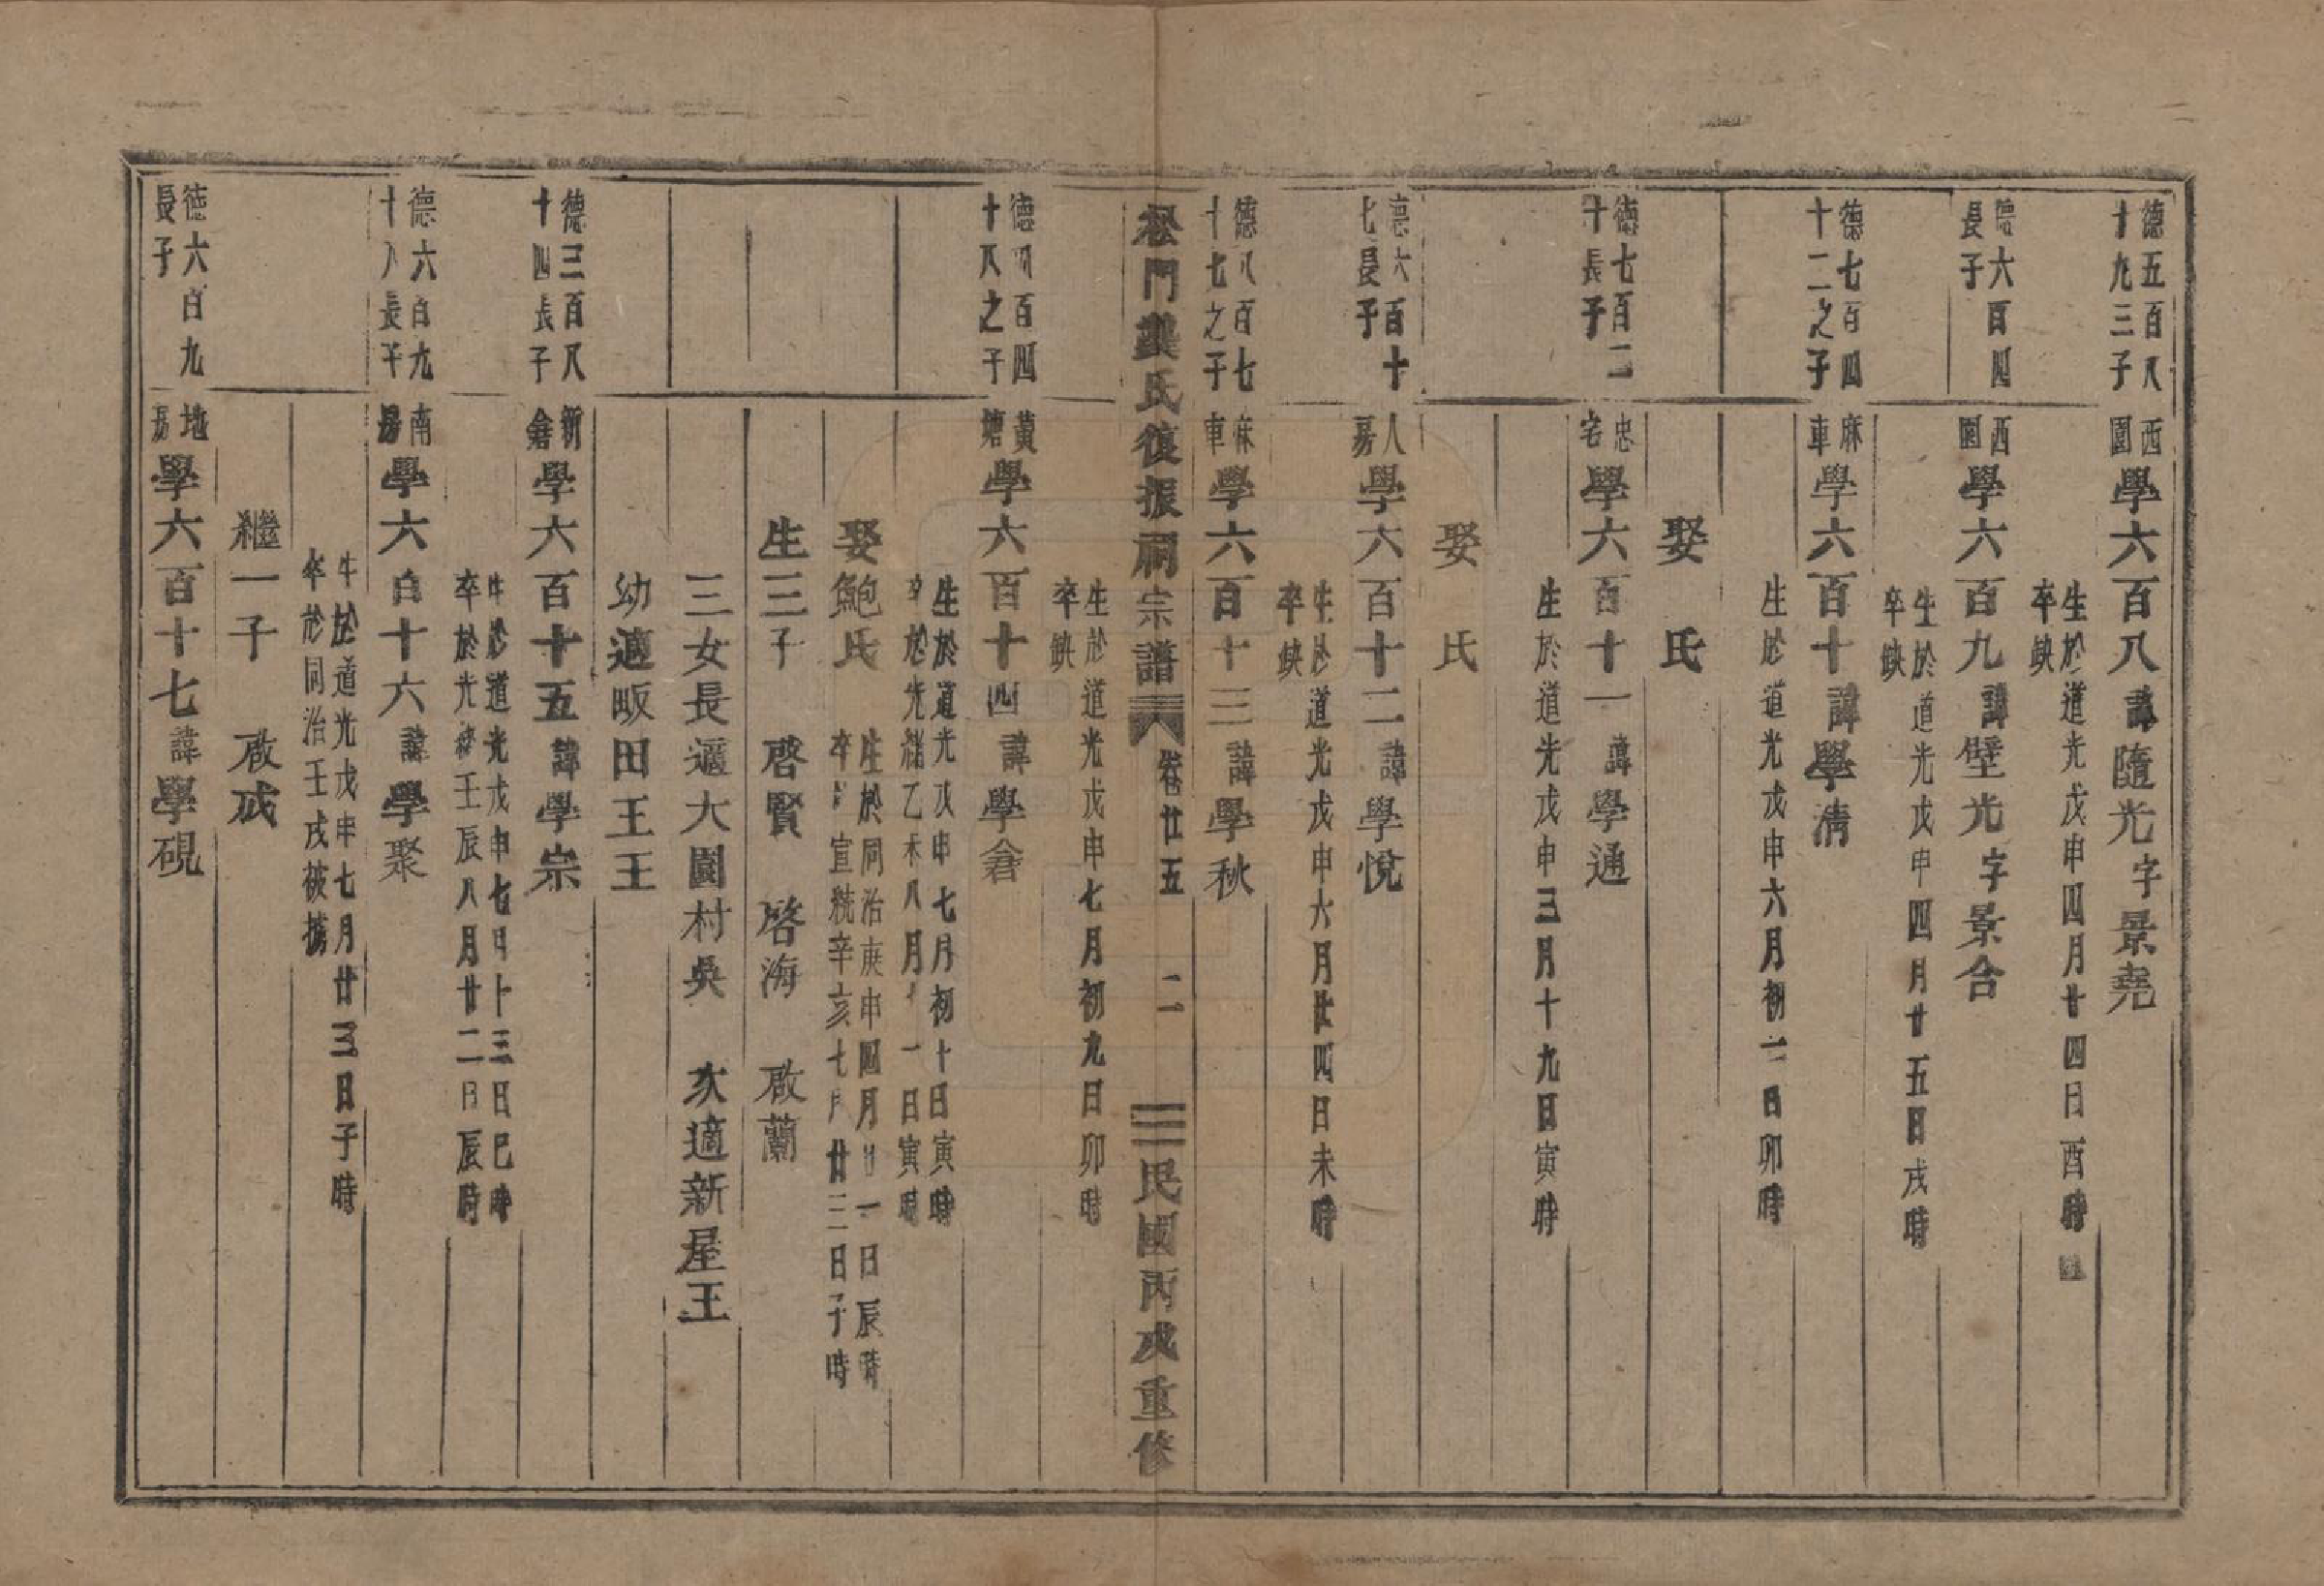 德五百八
十九三子
西
園
學六百八諱隨光字景堯
生於道光戊申四月廿四日酉時
卒缺
德六百四
長子
西
園
學六百九諱壁光字景合
生於道光戊申四月廿五日戌時
卒缺
德七百四
十二之子
麻
車
學六百十諱學清
生於道光戊申六月初二日卯時
娶 氏
德七百二
十長子
忠
宅
學六百十一諱學通
生於道光戊申三月十九日寅時
娶 氏
德六百十
七長子
人
房
學六百十二諱學悅
生於道光戊申六月廿四日未時
卒缺
德八百七
十七之子
麻
車
學六百十三諱學秋
松門龔氏復振祠宗譜 卷廿五 二 民國丙戌重修
生於道光戊申七月初九日卯時
卒缺
德八百四
十八之子
黃
塘
學六百十四諱學
生於道光戊申七月初十日寅時
卒於光緒乙未八月十一日寅時
娶鮑氏
生於同治庚申四月廿一日辰時
卒於宣統辛亥七月廿三日子時
生三子 啓賢 啓海 啟蘭
三女長適大園村吳 次適新屋王
幼適畈田王王
德三百八
十四長子
新
倉
學六百十五諱學宗
生於道光戊申七月十三日巳時
卒於光緒壬辰八月廿二日辰時
德六百九
十八長子
南
房
學六百十六諱學聚
生於道光戊申七月廿三日子時
卒於同治壬戌被擄
繼一子 啟成
德六百九
長子
地
房
學六百十七諱學硯